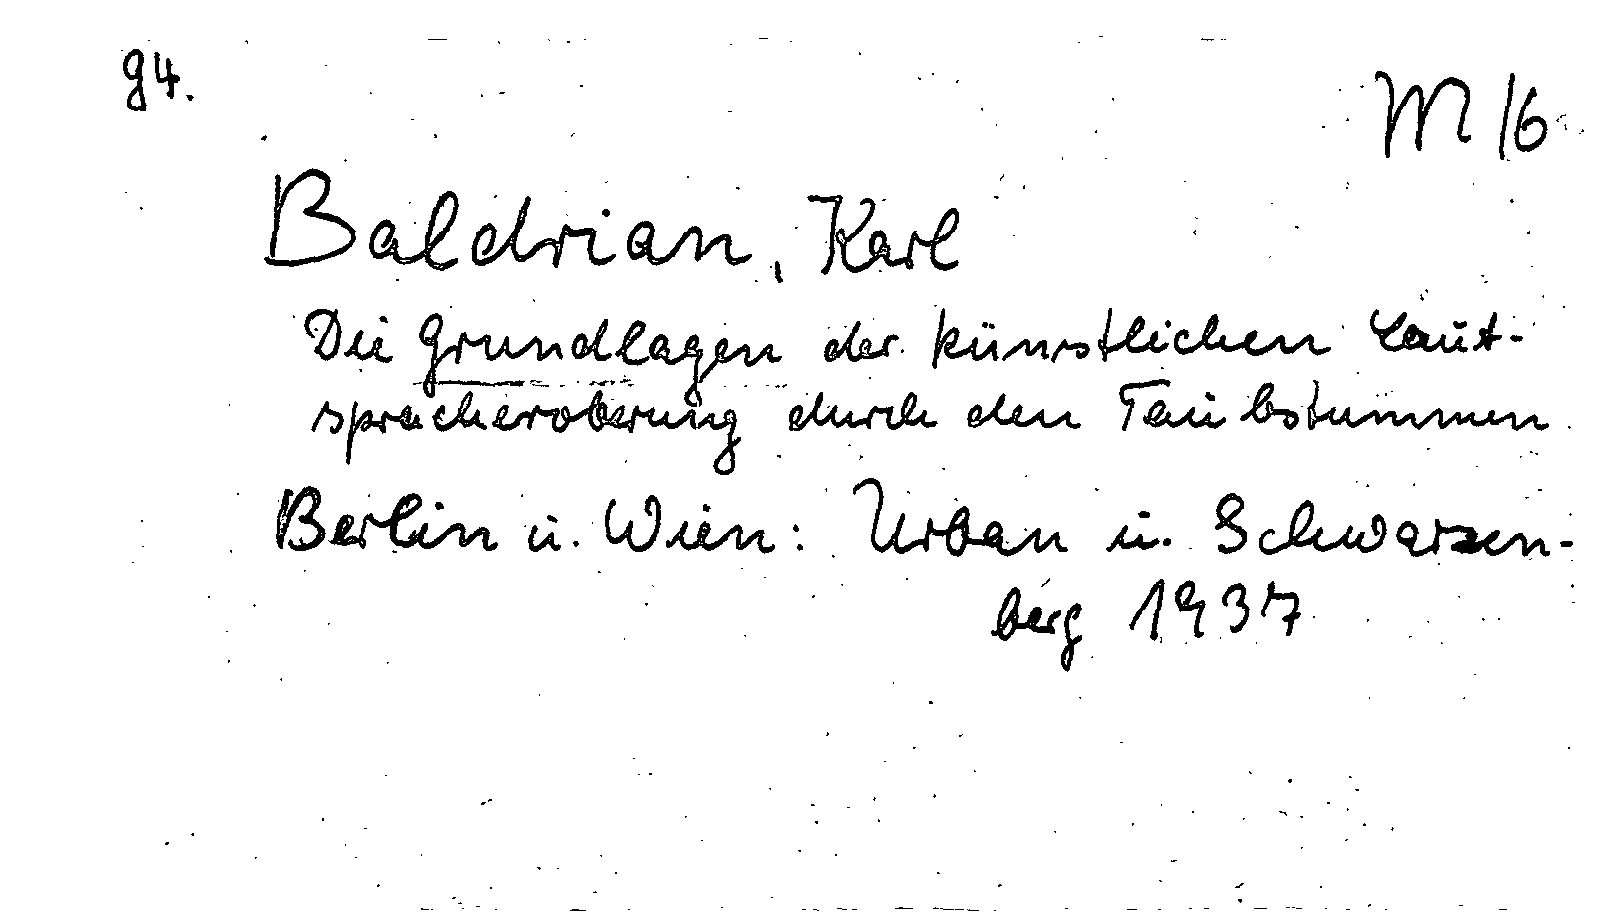 g4.
M 16
Baldrian, Karl
Die Grundlagen der künstlichen Laut-
spracheroberung durch den Taubstummen
Berlin u. Wien: Urban u. Schwarzen-
berg 1937